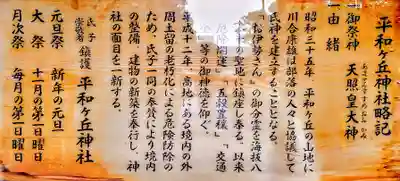 平和ケ丘神社略記
一 御祭神 天照皇大神
あまてらすすめおおかみ
一 由緒
昭和三十五年、平和ケ丘の山地に
川合康雄は部落の人々と協議して
氏神を建立することとなる。
「お伊勢さん」の御分霊を海抜八
の聖地に鎮座し奉る。以来
「五穀豊穣」「交通
等の御神徳を仰ぐ。
平成二年、高地にある境内の外
周土留の老朽化による危険防除の
ため、氏子一同の奉賛により境内
の整備、建物の新築を奉行し、神
社の面目を一新する。
氏子
崇敬者 鎮護 平和ケ丘神社
元旦祭 新年の元旦
大祭 十一月の第一日曜日
月次祭 毎月の第一日曜日